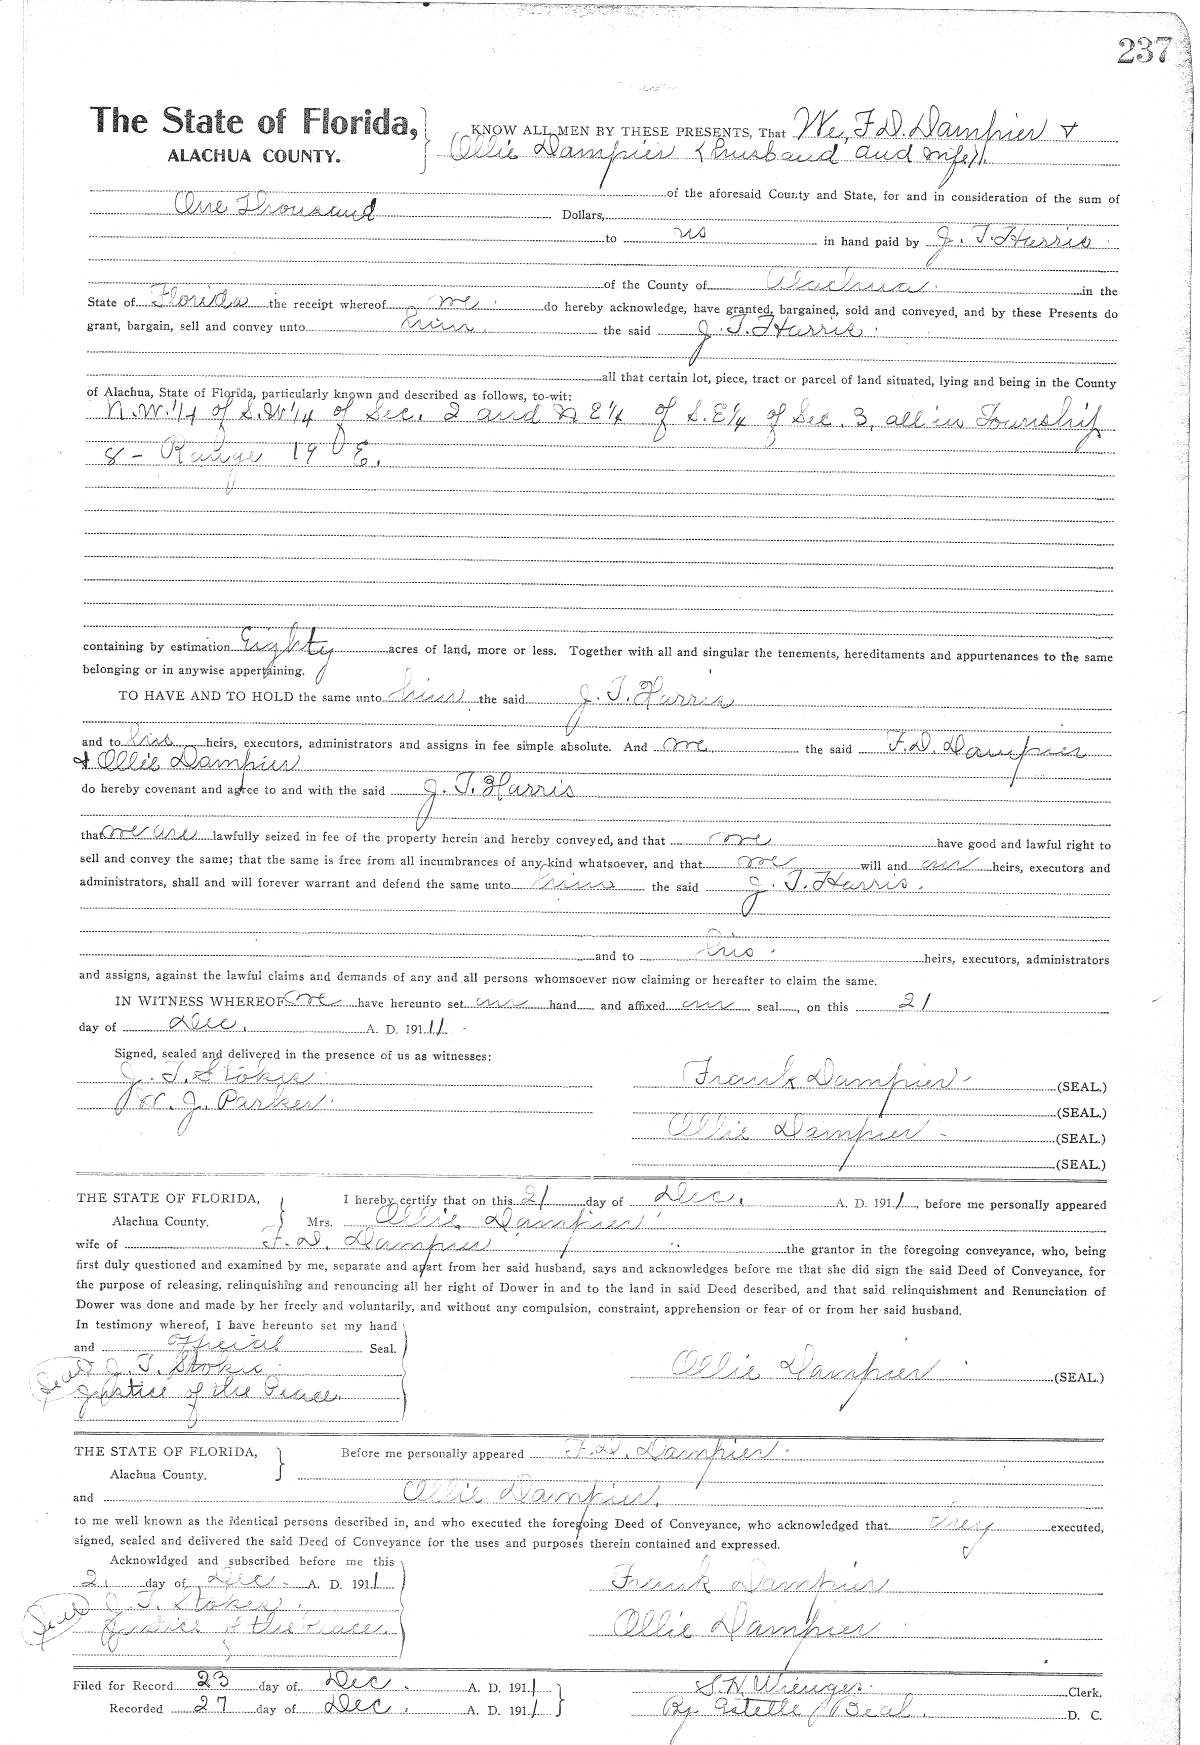 237
The State of Florida, KNOW ALL MEN BY THESE PRESENTS, That We, F.D. Dampier &
ALACHUA COUNTY. Ollie Dampier (husband and wife).
of the aforesaid County and State, for and in consideration of the sum of
One Thousand Dollars,
to us in hand paid by J. T. Harris.
of the County of Alachua. in the
State of Florida the receipt whereof we do hereby acknowledge, have granted, bargained, sold and conveyed, and by these Presents do
grant, bargain, sell and convey unto him. the said J. T. Harris.
all that certain lot, piece, tract or parcel of land situated, lying and being in the County
of Alachua, State of Florida, particularly known and described as follows, to-wit:
N.W. 1/4 of S.W 1/4 of Sec. 2 and N E 1/4 of S.E 1/4 of Sec. 3, all in Township
8 - Range 19 E.
containing by estimation Eighty acres of land, more or less. Together with all and singular the tenements, hereditaments and appurtenances to the same
belonging or in anywise appertaining.
TO HAVE AND TO HOLD the same unto him the said J. T. Harris
and to his heirs, executors, administrators and assigns in fee simple absolute. And we the said F. D. Dampier
& Ollie Dampier
do hereby covenant and agree to and with the said J. T. Harris
that we are lawfully seized in fee of the property herein and hereby conveyed, and that we have good and lawful right to
sell and convey the same; that the same is free from all incumbrances of any kind whatsoever, and that we will and our heirs, executors and
administrators, shall and will forever warrant and defend the same unto him the said J. T. Harris.
and to his. heirs, executors, administrators
and assigns, against the lawful claims and demands of any and all persons whomsoever now claiming or hereafter to claim the same.
IN WITNESS WHEREOF we have hereunto set our hand and affixed our seal, on this 21
day of Dec. A. D. 1911.
Signed, sealed and delivered in the presence of us as witnesses:
J. T. Stokes. Frank Dampier. (SEAL.)
W. J. Parker. (SEAL.)
Ollie Dampier - (SEAL.)
(SEAL.)
THE STATE OF FLORIDA, I hereby certify that on this 21 day of Dec. A. D. 1911, before me personally appeared
Alachua County. Mrs. Ollie Dampier
wife of F. D. Dampier the grantor in the foregoing conveyance, who, being
first duly questioned and examined by me, separate and apart from her said husband, says and acknowledges before me that she did sign the said Deed of Conveyance, for
the purpose of releasing, relinquishing and renouncing all her right of Dower in and to the land in said Deed described, and that said relinquishment and Renunciation of
Dower was done and made by her freely and voluntarily, and without any compulsion, constraint, apprehension or fear of or from her said husband.
In testimony whereof, I have hereunto set my hand
and official Seal.
Seal J. T. Stokes. Ollie Dampier (SEAL.)
Justice of the Peace.
THE STATE OF FLORIDA, Before me personally appeared F. D. Dampier.
Alachua County.
and Ollie Dampier.
to me well known as the identical persons described in, and who executed the foregoing Deed of Conveyance, who acknowledged that they executed,
signed, sealed and delivered the said Deed of Conveyance for the uses and purposes therein contained and expressed.
Acknowldged and subscribed before me this
21 day of Dec. A. D. 1911 Frank Dampier
Seal J. T. Stokes.
Justice of the Peace. Ollie Dampier
Filed for Record 23 day of Dec. A. D. 1911 S. H. Wienges. Clerk.
Recorded 27 day of Dec. A. D. 1911 By Estelle Beal. D. C.